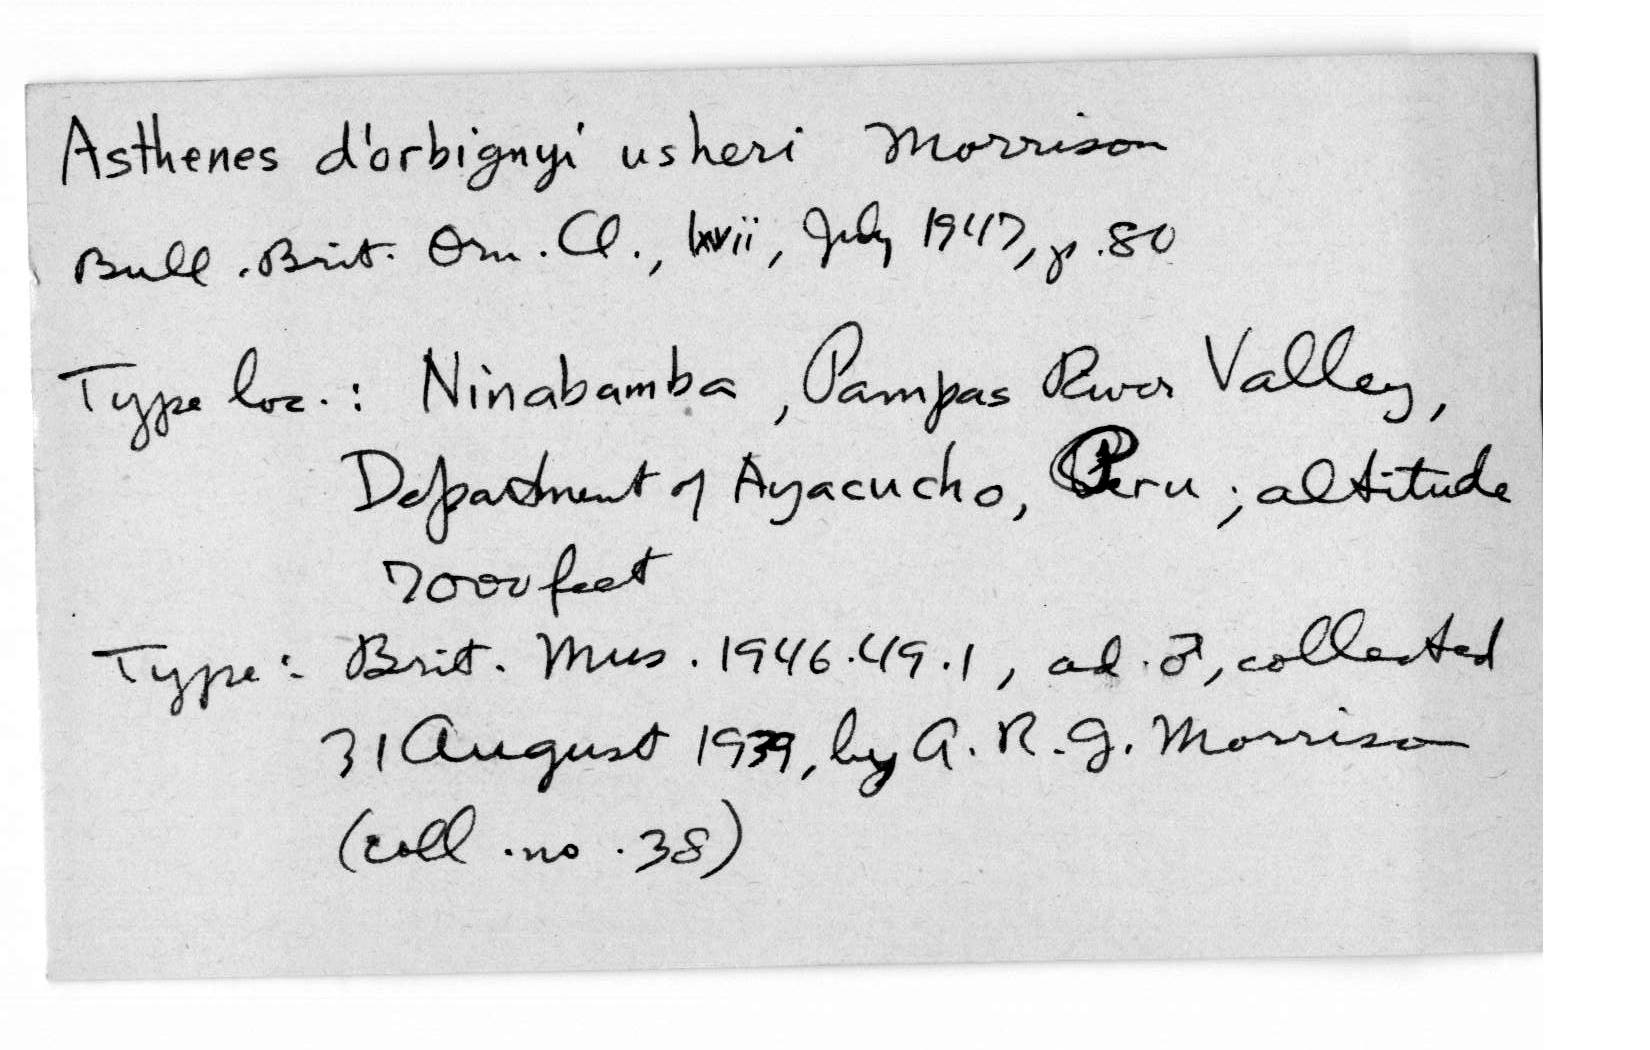 Asthenes d'orbignyi usheri Morrison
Bull. Brit. Orn. Cl., lxvii, July 1947, p. 80
Type loc.: Ninabamba, Pampas River Valley,
Department of Ayacucho, Peru; altitude
7000 feet
Type: Brit. Mus. 1946.49.1, ad. ♂, collected
31 August 1939, by A. R. G. Morrison
(coll. no. 38)